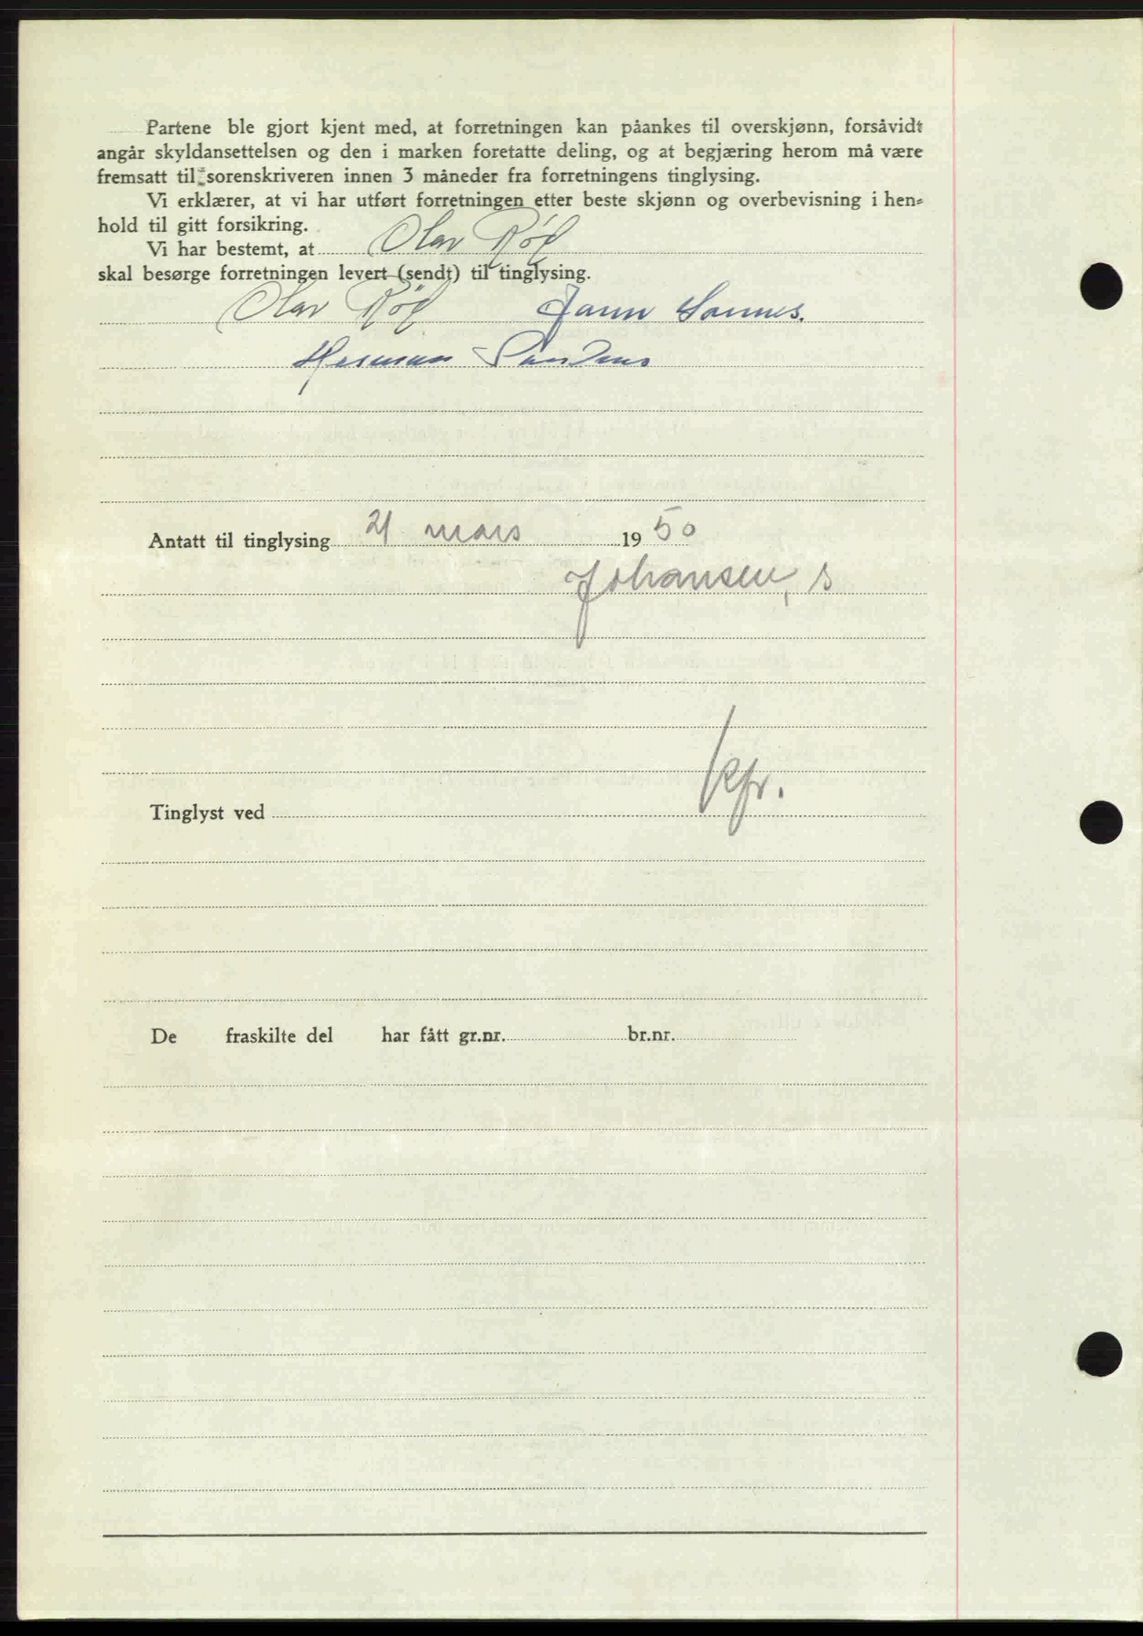 Partene ble gjort kjent med, at forretningen kan påankes til overskjønn, forsåvidt
angår skyldansettelsen og den i marken foretatte deling, og at begjæring herom må være
fremsatt til sorenskriveren innen 3 måneder fra forretningens tinglysing.
Vi erklærer, at vi har utført forretningen etter beste skjønn og overbevisning i hen-
hold til gitt forsikring.
Vi har bestemt, at Olav
skal besørge forretningen levert (sendt) til tinglysing.
Olav
Herman
Antatt til tinglysing 21 mars 1950
Johansen, s
kfr.
Tinglyst ved
De fraskilte del har fått gr.nr. br.nr.